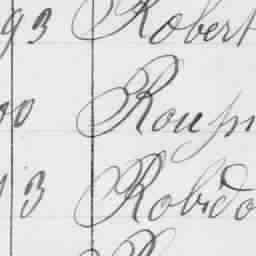 93 Robert
00 Rou
13 Robido